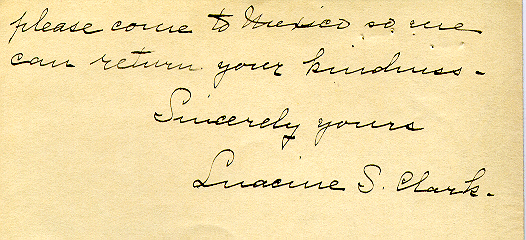 please come to Mexico so we
can return your kindness.
Sincerely yours
Luacine S. Clark.